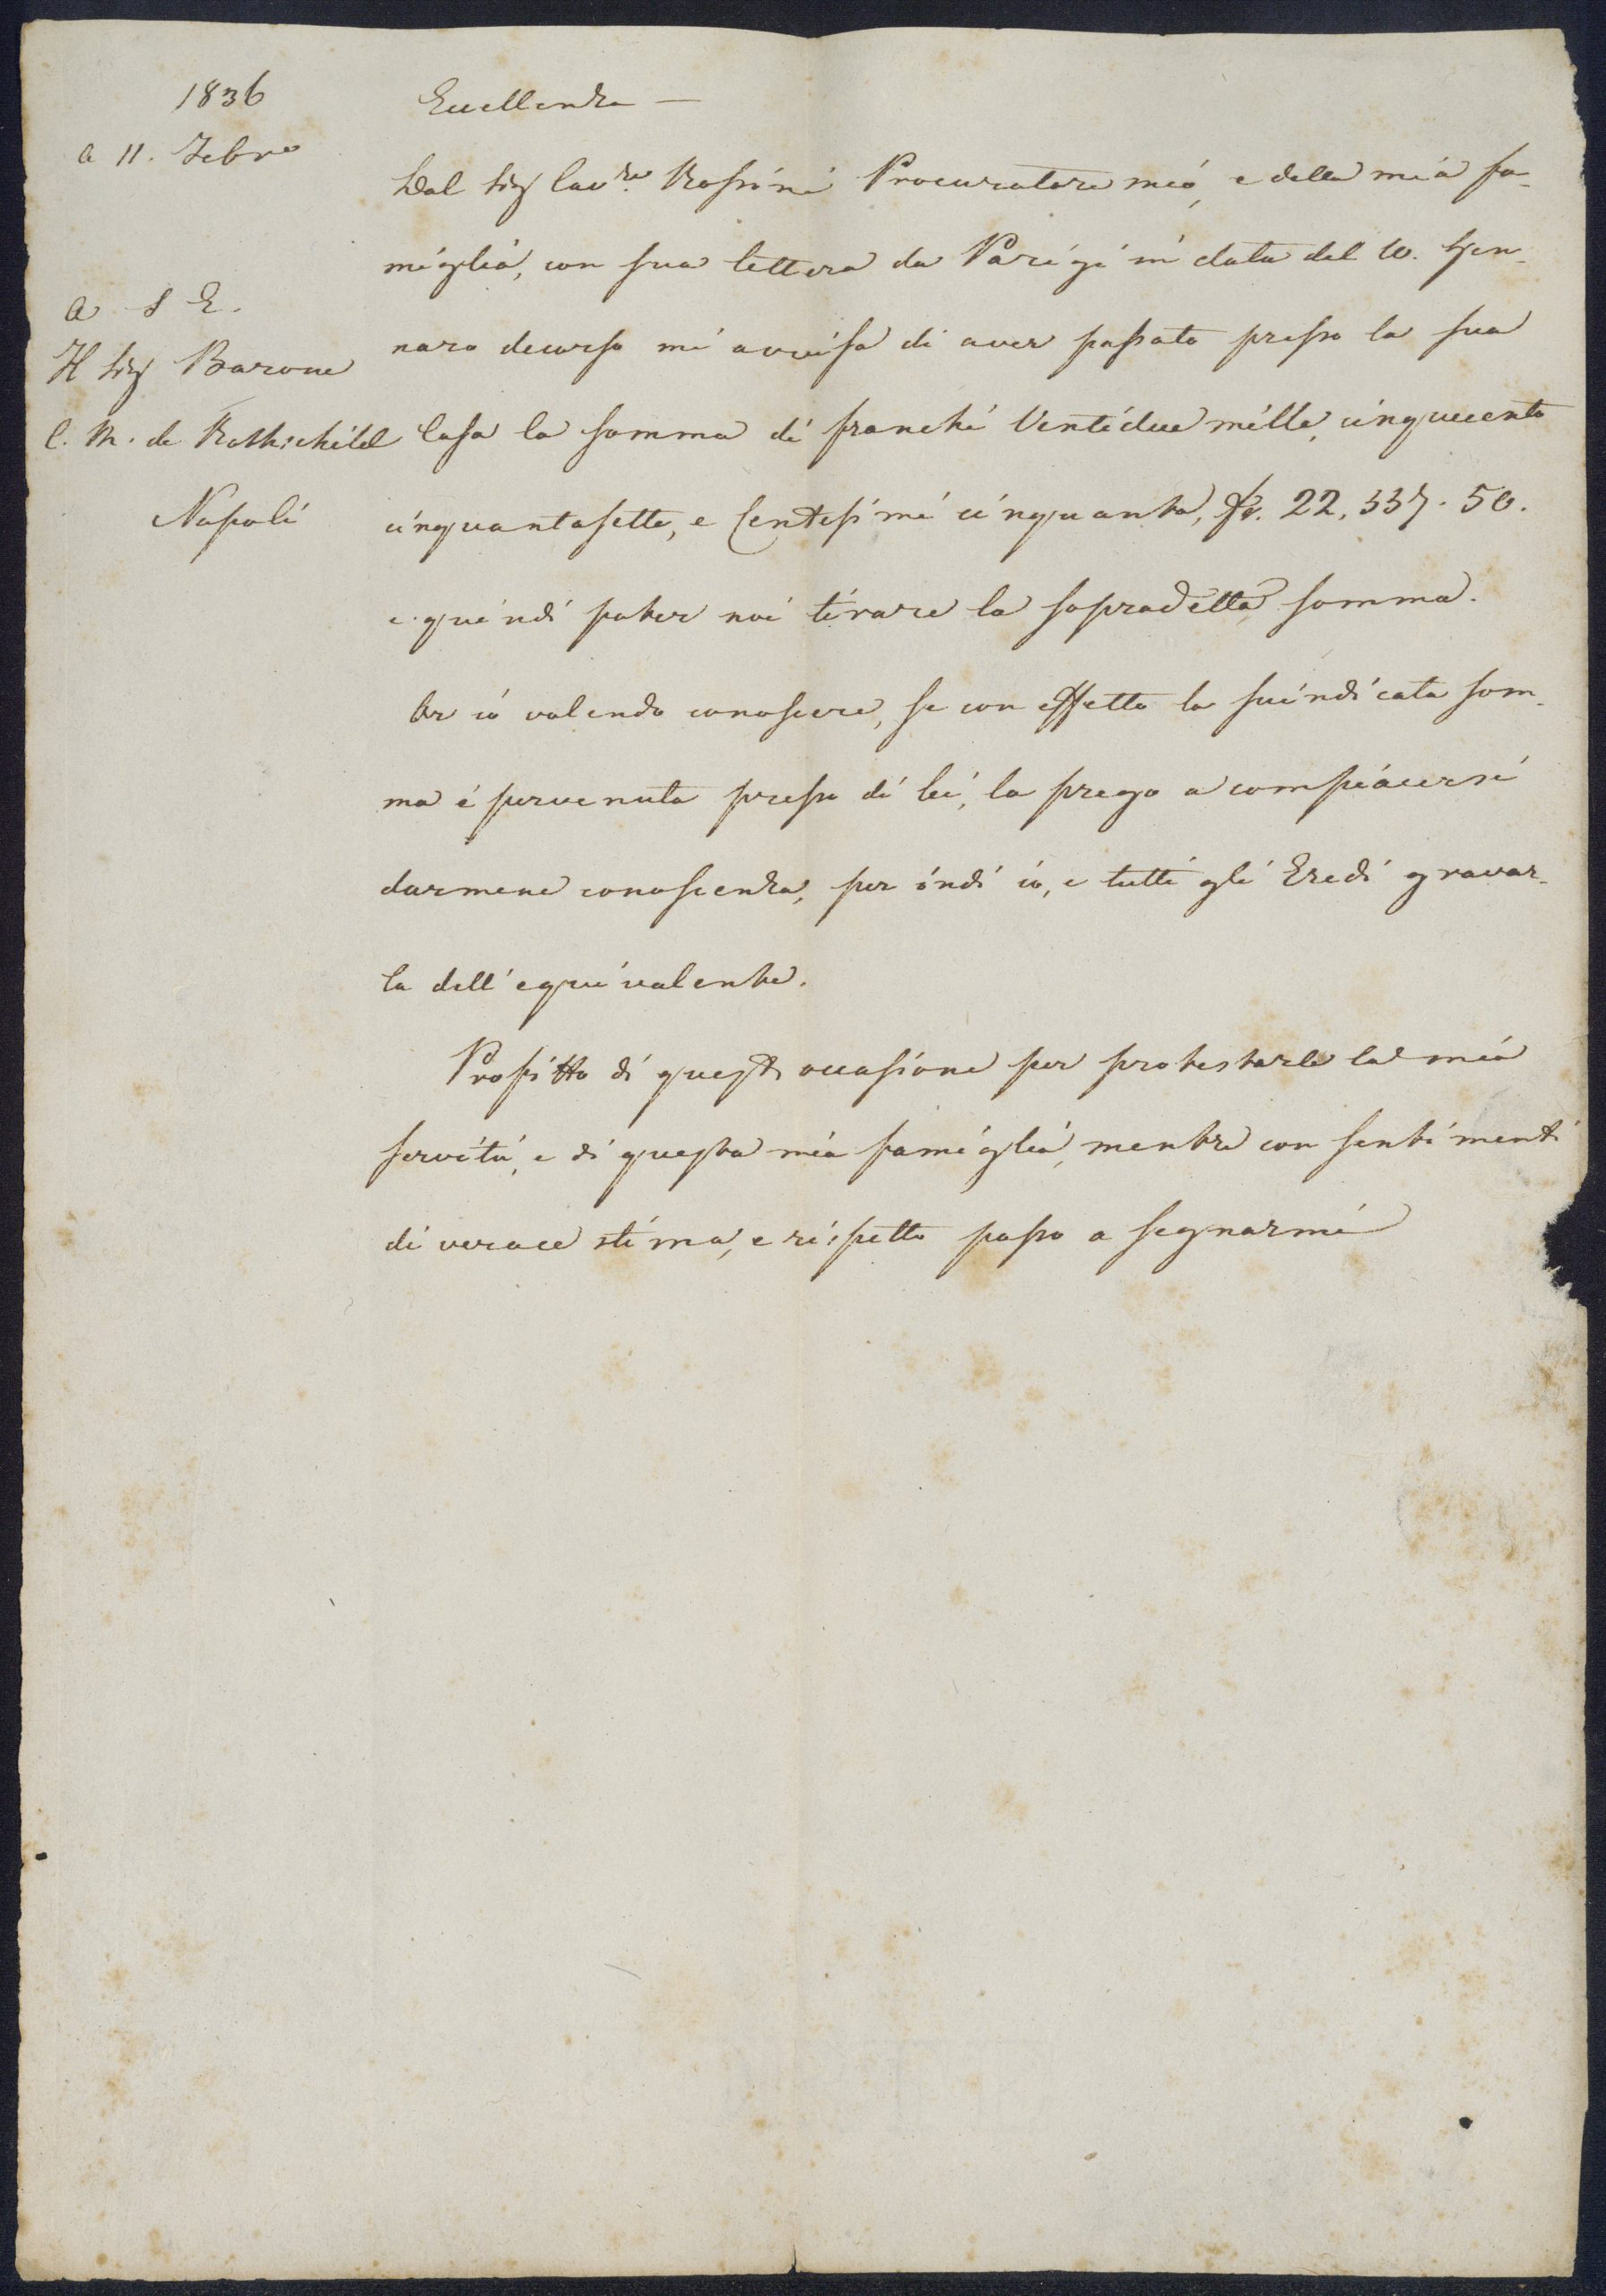 1836
a 11. Febro
A S E.
Il Sig Barone
C. M. de Rothschild
Napoli
Eccellenza —
Dal Sig Cavre. Rossini Procuratore mio, e della mia fa-
miglia, con sua lettera da Parigi in data del 10. Gen-
naro decorso mi avvisa di aver passato presso la sua
Casa la somma di franchi Ventidue mille, cinquecento
cinquantasette, e Centesimi cinquanta, fr. 22,557.50.
e quindi poter noi tirare la sopradetta somma.
Or io volendo conoscere, se con effetto la suindicata som-
ma è pervenuta presso di lei, la prego a compiacersi
darmene conoscenza, per indi io, e tutti gli Eredi gravar-
la dell'equivalente.
Profitto di questa occasione per protestarle la mia
servitù, e di questa mia famiglia, mentre con sentimenti
di verace stima, e rispetto passo a segnarmi